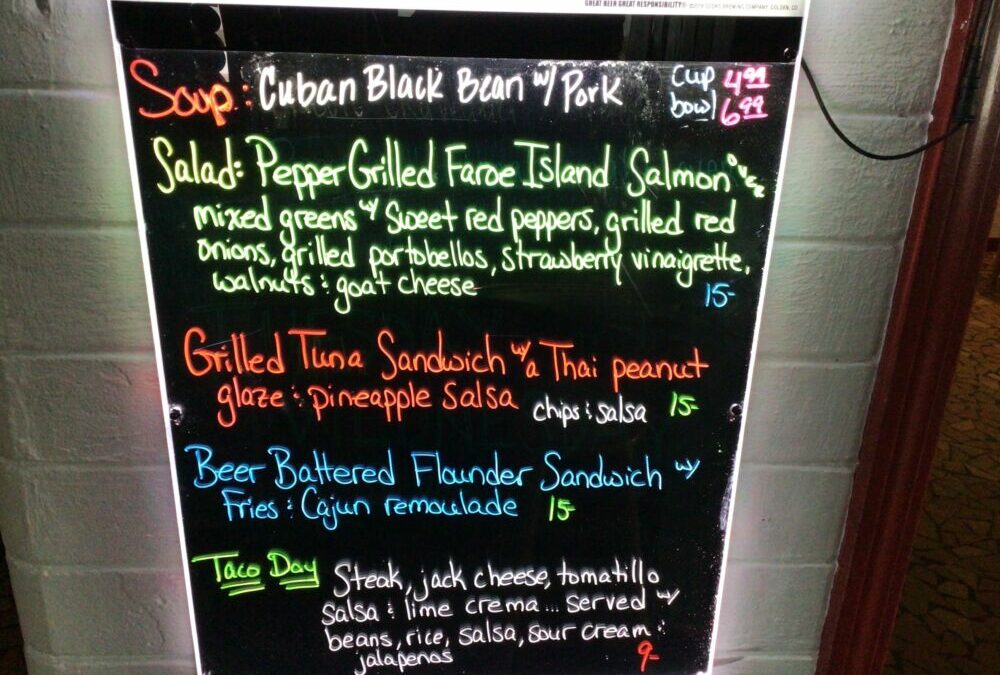 GREAT BEER GREAT RESPONSIBILITY®
BREWING COMPANY, GOLDEN, CO
Soup: Cuban Black Bean w/ Pork cup 4.99
bowl 6.99
Salad: Pepper Grilled Faroe Island Salmon over
mixed greens w/ Sweet red peppers, grilled red
onions, grilled portobellos, strawberry vinaigrette,
walnuts & goat cheese 15-
Grilled Tuna Sandwich w/ a Thai peanut
glaze & pineapple Salsa chips & salsa 15-
Beer Battered Flounder Sandwich w/
Fries & Cajun remoulade 15-
Taco Day Steak, jack cheese, tomatillo
salsa & lime crema... served w/
beans, rice, salsa, sour cream &
jalapenos 9-